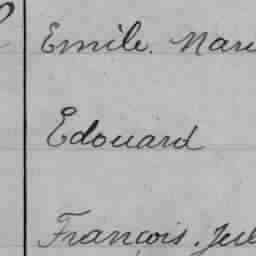 Emile. Mari
Edouard
François. Jul